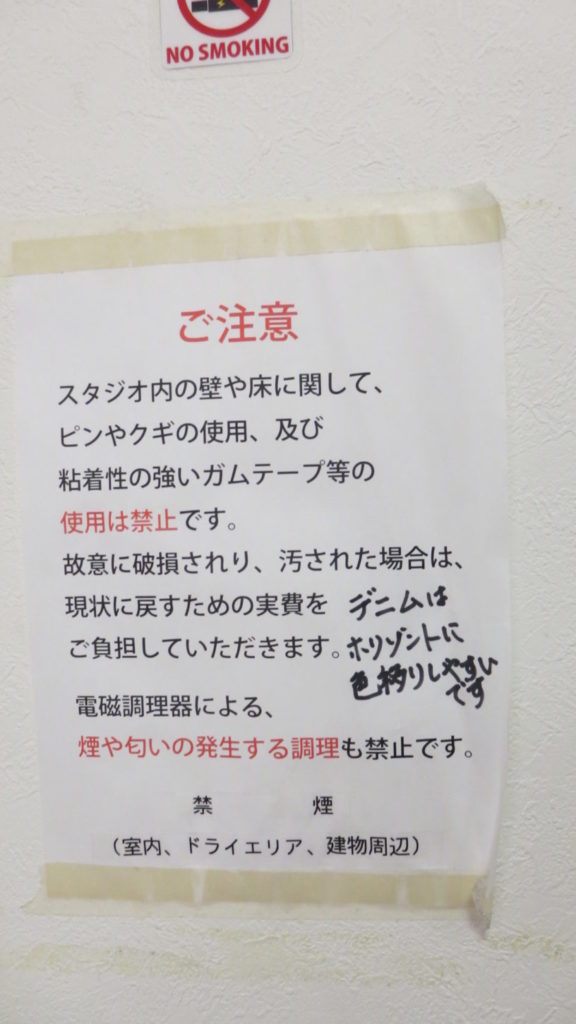 NO SMOKING
ご注意
スタジオ内の壁や床に関して、
ピンやクギの使用、及び
粘着性の強いガムテープ等の
使用は禁止です。
故意に破損されり、汚された場合は、
現状に戻すための実費を
ご負担していただきます。
デニムは
ホリゾントに
色柄りしやすい
です
電磁調理器による、
煙や匂いの発生する調理も禁止です。
禁 煙
（室内、ドライエリア、建物周辺）